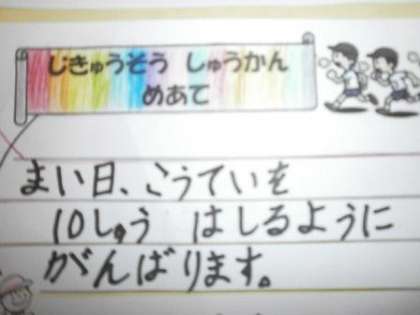 じきゅうそう しゅうかん
めあて
まい日、こうていを
10しゅう はしるように
がんばります。